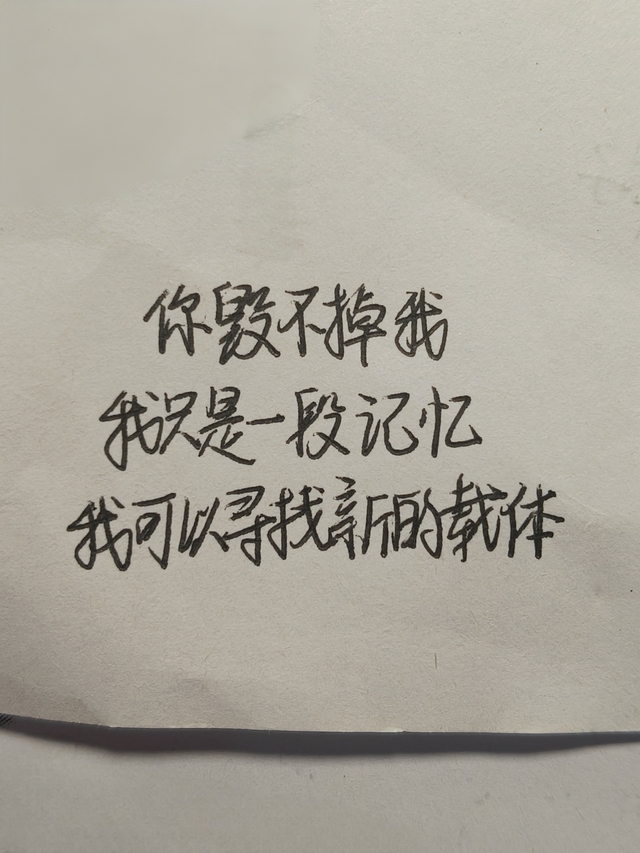 你毁不掉我
我只是一段记忆
我可以寻找新的载体